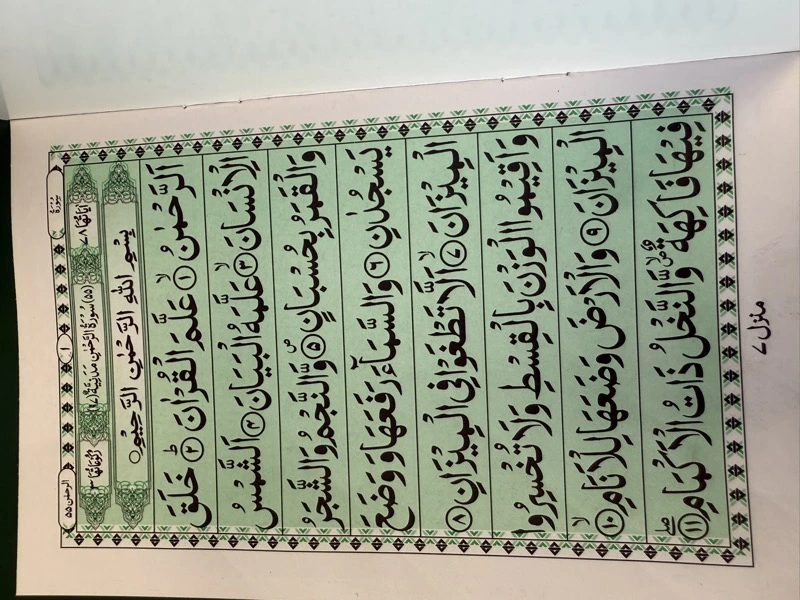 الرحمن ٥٥
١
سُوْرَةُ
اٰيَاتُهَا ٧٨
(٥٥) سُوْرَةُ الرَّحْمٰنِ مَدَنِيَّةٌ (٩٧)
رُكُوْعَاتُهَا ٣
بِسْمِ اللّٰهِ الرَّحْمٰنِ الرَّحِيْمِ ○
اَلرَّحْمٰنُ ۙ﴿١﴾ عَلَّمَ الْقُرْاٰنَ ؕ﴿٢﴾ خَلَقَ
الْاِنْسَانَ ۙ﴿٣﴾ عَلَّمَهُ الْبَيَانَ ﴿٤﴾ اَلشَّمْسُ
وَالْقَمَرُ بِحُسْبَانٍ ۪﴿٥﴾ وَّالنَّجْمُ وَالشَّجَرُ
يَسْجُدٰنِ ﴿٦﴾ وَالسَّمَآءَ رَفَعَهَا وَوَضَعَ
الْمِيْزَانَ ۙ﴿٧﴾ اَلَّا تَطْغَوْا فِى الْمِيْزَانِ ﴿٨﴾
وَاَقِيْمُوا الْوَزْنَ بِالْقِسْطِ وَلَا تُخْسِرُوا
الْمِيْزَانَ ﴿٩﴾ وَالْاَرْضَ وَضَعَهَا لِلْاَنَامِ ۙ﴿١٠﴾
فِيْهَا فَاكِهَةٌ ۪ۙ وَّالنَّخْلُ ذَاتُ الْاَكْمَامِ ۖ﴿١١﴾
منزل ٧